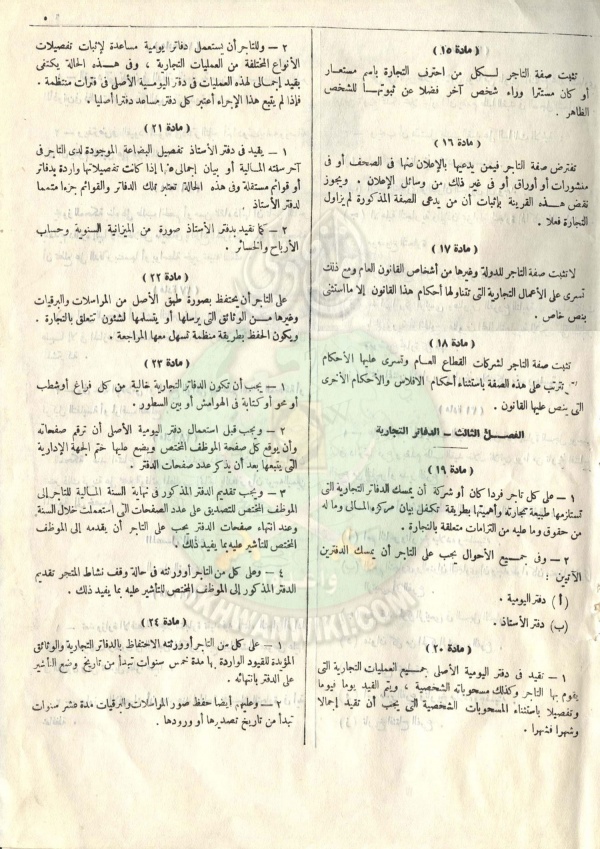 ٥
( مادة ١٥ )
تثبت صفة التاجر لكل من احترف التجارة باسم مستعار
أو كان مستترا وراء شخص آخر فضلا عن ثبوتها للشخص
الظاهر .
( مادة ١٦ )
تفترض صفة التاجر فيمن يدعيها بالإعلان عنها فى الصحف أو فى
منشورات أو أوراق أو فى غير ذلك من وسائل الإعلان ، ويجوز
نقض هذه القرينة بإثبات أن من يدعى الصفة المذكورة لم يزاول
التجارة فعلا .
( مادة ١٧ )
لا تثبت صفة التاجر للدولة وغيرها من أشخاص القانون العام ومع ذلك
تسرى على الأعمال التجارية التى تتناولها أحكام هذا القانون إلا ما استثنى
بنص خاص .
( مادة ١٨ )
تثبت صفة التاجر لشركات القطاع العام وتسرى عليها الأحكام
التى تترتب على هذه الصفة باستثناء أحكام الافلاس والأحكام الأخرى
التى ينص عليها القانون .
الفصل الثالث - الدفاتر التجارية
( مادة ١٩ )
١ - على كل تاجر فردا كان أو شركة أن يمسك الدفاتر التجارية التى
تستلزمها طبيعة تجارته وأهميتها بطريقة تكفل بيان مركزه المالى وما له
من حقوق وما عليه من التزامات متعلقة بالتجارة .
٢ - وفى جميع الأحوال يجب على التاجر أن يمسك الدفترين
الآتيين :
( أ ) دفتر اليومية .
(ب) دفتر الأستاذ .
( مادة ٢٠ )
١ - تقيد فى دفتر اليومية الأصلى جميع العمليات التجارية التى
يقوم بها التاجر وكذلك مسحوباته الشخصية ، ويتم القيد يوما فيوما
وتفصيلا باستثناء المسحوبات الشخصية التى يجب أن تقيد إجمالا
وشهرا فشهرا .
٢ - وللتاجر أن يستعمل دفاتر يومية مساعدة لإثبات تفصيلات
الأنواع المختلفة من العمليات التجارية ، وفى هذه الحالة يكتفى
بقيد إجمالى لهذه العمليات فى دفتر اليومية الأصلى فى فترات منتظمة .
فإذا لم يتبع هذا الإجراء أعتبر كل دفتر مساعد دفترا أصليا .
( مادة ٢١ )
١ - يقيد فى دفتر الأستاذ تفصيل البضاعة الموجودة لدى التاجر فى
آخر سنته المالية أو بيان إجمالى عنها إذا كانت تفصيلاتها واردة بدفاتر
أو قوائم مستقلة وفى هذه الحالة تعتبر تلك الدفاتر والقوائم جزءا متمما
لدفتر الأستاذ .
٢ - كما تقيد بدفتر الأستاذ صورة من الميزانية السنوية وحساب
الأرباح والخسائر .
( مادة ٢٢ )
على التاجر أن يحتفظ بصورة طبق الأصل من المراسلات والبرقيات
وغيرها من الوثائق التى يرسلها أو يتسلمها لشئون تتعلق بالتجارة .
ويكون الحفظ بطريقة منظمة تسهل معها المراجعة .
( مادة ٢٣ )
١ - يجب أن تكون الدفاتر التجارية خالية من كل فراغ أو شطب
أو محو أو كتابة فى الهوامش أو بين السطور .
٢ - ويجب قبل استعمال دفتر اليومية الأصلى أن ترقم صفحاته
وأن يوقع كل صفحة الموظف المختص ويضع عليها ختم الجهة الإدارية
التى يتبعها بعد أن يذكر عدد صفحات الدفتر .
٣ - ويجب تقديم الدفتر المذكور فى نهاية السنة المالية للتاجر إلى
الموظف المختص للتصديق على عدد الصفحات التى استعملت خلال السنة .
وعند انتهاء صفحات الدفتر يجب على التاجر أن يقدمه إلى الموظف
المختص للتأشير عليه بما يفيد ذلك .
٤ - وعلى كل من التاجر أو ورثته فى حالة وقف نشاط المتجر تقديم
الدفتر المذكور إلى الموظف المختص للتأشير عليه بما يفيد ذلك .
( مادة ٢٤ )
١ - على كل من التاجر أو ورثته الاحتفاظ بالدفاتر التجارية والوثائق
المؤيدة للقيود الواردة بها مدة خمس سنوات تبدأ من تاريخ وضع التأشير
على الدفتر بانتهائه .
٢ - وعليهم أيضا حفظ صور المراسلات والبرقيات مدة عشر سنوات
تبدأ من تاريخ تصديرها أو ورودها .